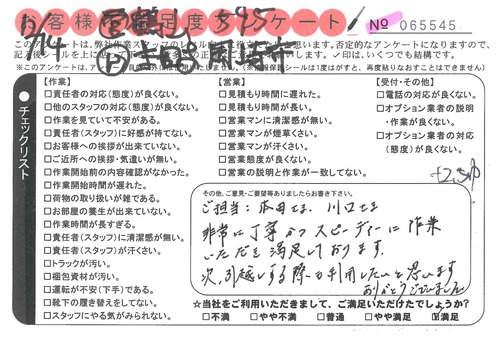 お客様満足度アンケート
No 065545
12/14
このアンケートは、弊社作業スタッフの
否定的なアンケートになりますので、
✓印は、いくつでも結構です。
チェックリスト
【作業】
□責任者の対応(態度)が良くない。
□他のスタッフの対応(態度)が良くない。
□作業を見ていて不安がある。
□責任者(スタッフ)に好感が持てない。
□お客様への挨拶が出来ていない。
□ご近所への挨拶・気遣いが無い。
□作業開始前の内容確認がなかった。
□作業開始時間が遅れた。
□荷物の取り扱いが雑である。
□お部屋の養生が出来ていない。
□作業時間が長すぎる。
□責任者(スタッフ)に清潔感が無い。
□責任者(スタッフ)が汗くさい。
□トラックが汚い。
□梱包資材が汚い。
□運転が不安(下手)である。
□靴下の履き替えをしてない。
□スタッフにやる気がみられない。
【営業】
□見積もり時間に遅れた。
□見積もり時間が長い。
□営業マンに清潔感が無い。
□営業マンが煙草くさい。
□営業マンが汗くさい。
□営業態度が良くない。
□営業の説明と作業が一致してない。
【受付・その他】
□電話の対応が良くない。
□オプション業者の説明
・作業が良くない。
□オプション業者の対応
(態度)が良くない。
その他、ご意見・ご要望等ありましたらお書き下さい。
ご担当:本田さま、川口さま
非常に丁寧かつスピーディーに作業
いただき満足しております。
次、引越しする際も利用したいと思います
ありがとうございました
☆当社をご利用いただきまして、ご満足いただけたでしょうか?
□不満 □やや不満 □普通 □やや満足 ☑満足